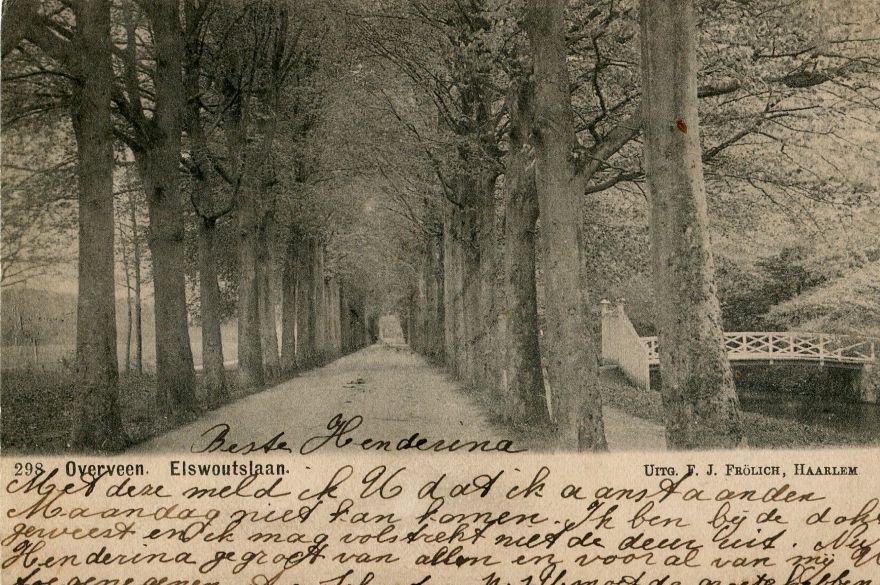 Beste Henderina
298 Overveen. Elswoutslaan. Uitg. F. J. Frölich, Haarlem
Met deze meld ik U dat ik aanstaanden
Maandag niet kan komen. Ik ben bij de dok
geweest en ik mag volstrekt niet de deur uit. Nu
Henderina gegroet van allen en vooral van mij